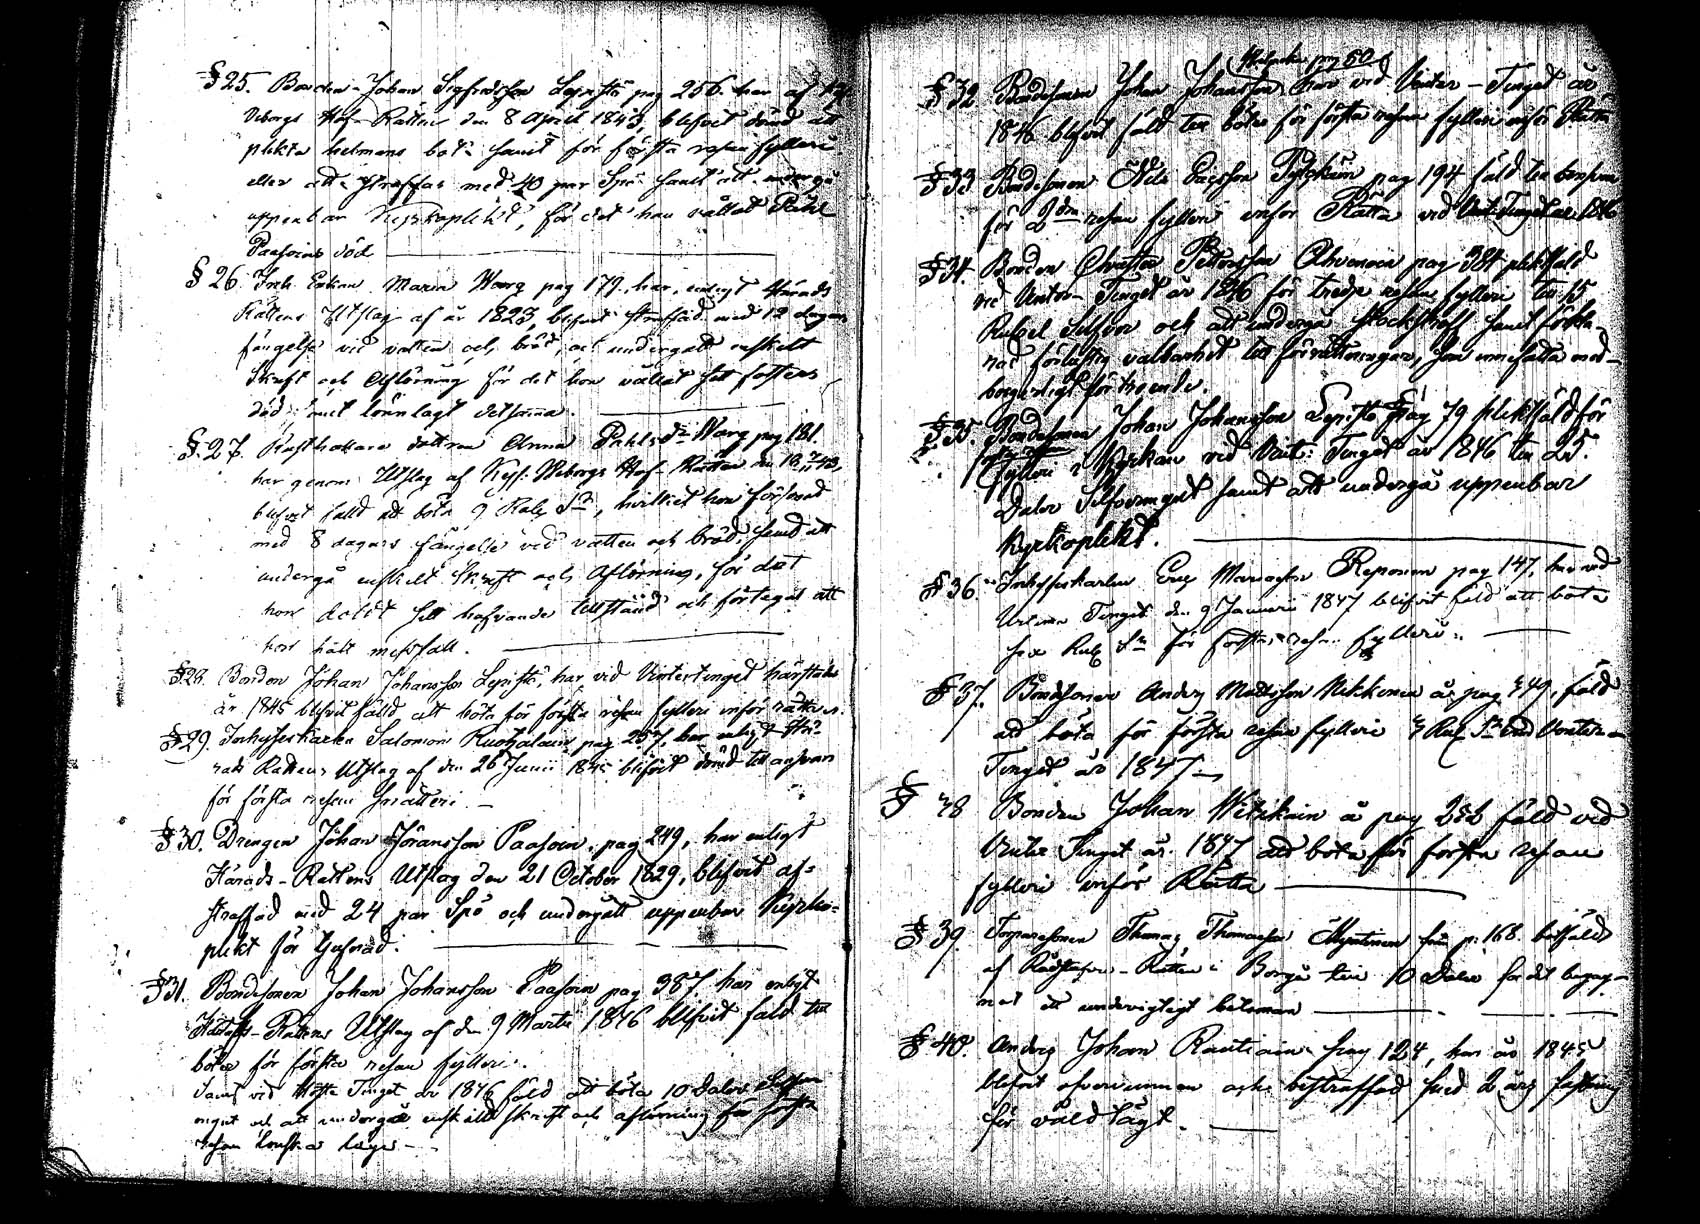 § 25. Bonden Johan Sigfridsson Lepistö pag 256. har af
Wiborgs Hof-Rätten den 8 April 1843, blefvit dömd att
plikta helmans bot samt för första resan fylleri
eller att straffas med 40 par Spö samt att undergå
uppenbar Kyrkoplikt, för det han vållat Påhl
Paasoins död
§ 26. Inh. Enkan Maria Warg pag 179. har, enligt Härads
Rättens Utslag af år 1823, blifvit straffad med 12 dagars
fängelse vid vatten och bröd, och undergått enskilt
Skrift och Aflösning för det hon vållat sitt fosters
död samt lönnlagt detsamma.
§. 27. Rusthållare dottren Anna Påhlsdr Warg pag 181.
har genom Utslag af Kejs: Wiborgs Hof-Rätten
blifvit fälld att böta 9 Rub. Sr, hvilket hon försonat
med 8 dagars fängelse vid vatten och bröd, samt att
undergå enskilt Skrift och Aflösning, för det
hon döldt sitt hafvande tillstånd och förtegat att
hon hade missfall.
§ 28. Bonden Johan Johansson Lepistö, har vid Vintertinget härstädes
år 1845 blifvit fälld att böta för första resan fylleri inför rätten.
§ 29. Inhyseskarlen Salomon Ruotsalain pag 237, har enligt Hä-
rads Rättens Utslag af den 26 Junii 1845 blifvit dömd till ansvar
för första resan snatteri.
§ 30. Drengen Johan Jöransson Paasoin, pag 249, har enligt
Härads-Rättens Utslag den 21 October 1829, blefvit af-
straffad med 24 par Spö och undergått uppenbar Kyrko-
plikt för tjufnad.
§ 31. Bondesonen Johan Johansson Paasoin pag 387 har enligt
Härads-Rättens Utslag af den 9 Martii 1846 blifvit fäld till
böter för första resan fylleri.
Samt vid Höste Tinget år 1846 fäld att böta 10 Daler Silfver
mynt och att undergå enskildt skrift och aflösning för första
resan lönska läge
pag 50
§ 32 Bondesonen Johan Johansson har vid Vinter-Tinget år
1846 blifvit fäld till böter för första resan fylleri inför Rätta
§ 33 Bondesonen Nils Ericsson Pylkkäin pag 194 fäld till
för 2dra resan fylleri inför Rätta vid Vint. Tinget år 1846
§ 34. Bonden Christer Pettersson Ahvenain pag 384 pliktfäld
vid Vinter-Tinget år 1846 för tredje resan fylleri till 15
Rubel Silfver och att undergå Stockstraff samt förkla-
rad förlustig valbarhet till förrättningar, som innefatta med-
borgerligt förtroende.
§ 35. Bondesonen Johan Johansson Lepistö pag 79 pliktfäld för
fylleri i Kyrkan vid Vint: Tinget år 1846 till 25.
Daler Silfvermynt samt att undergå uppenbar
Kyrkoplikt.
§ 36. Inhyseskarlen Eric Mariasson Reponen pag 147, har vid
Urtima Tinget den 9 Januari 1847 blifvit fäld att böta
sex Rub. Sr för första resan fylleri.
§ 37. Bondesonen Anders Mattsson Nikkinen å pag 449, fäld
att böta för första resan fylleri Rub Sr vid Vinter-
Tinget år 1847
§ 38 Bonden Johan Witikain å pag 252 fäld vid
Vinter Tinget år 1847 att böta för första resan
fylleri inför Rätta
§ 39. Torparesonen Thomas Thomasson Myntinen från p. 168 botfälld
af Rådstufvu-Rätten i Borgå till 10 Daler för det begag-
nat ett undervigtigt betsman
§ 40. Anders Johan Rautiain pag 124, har år 1845
blifvit öfvervunnen och bestraffad med 2 års fästning
för våldtägt.